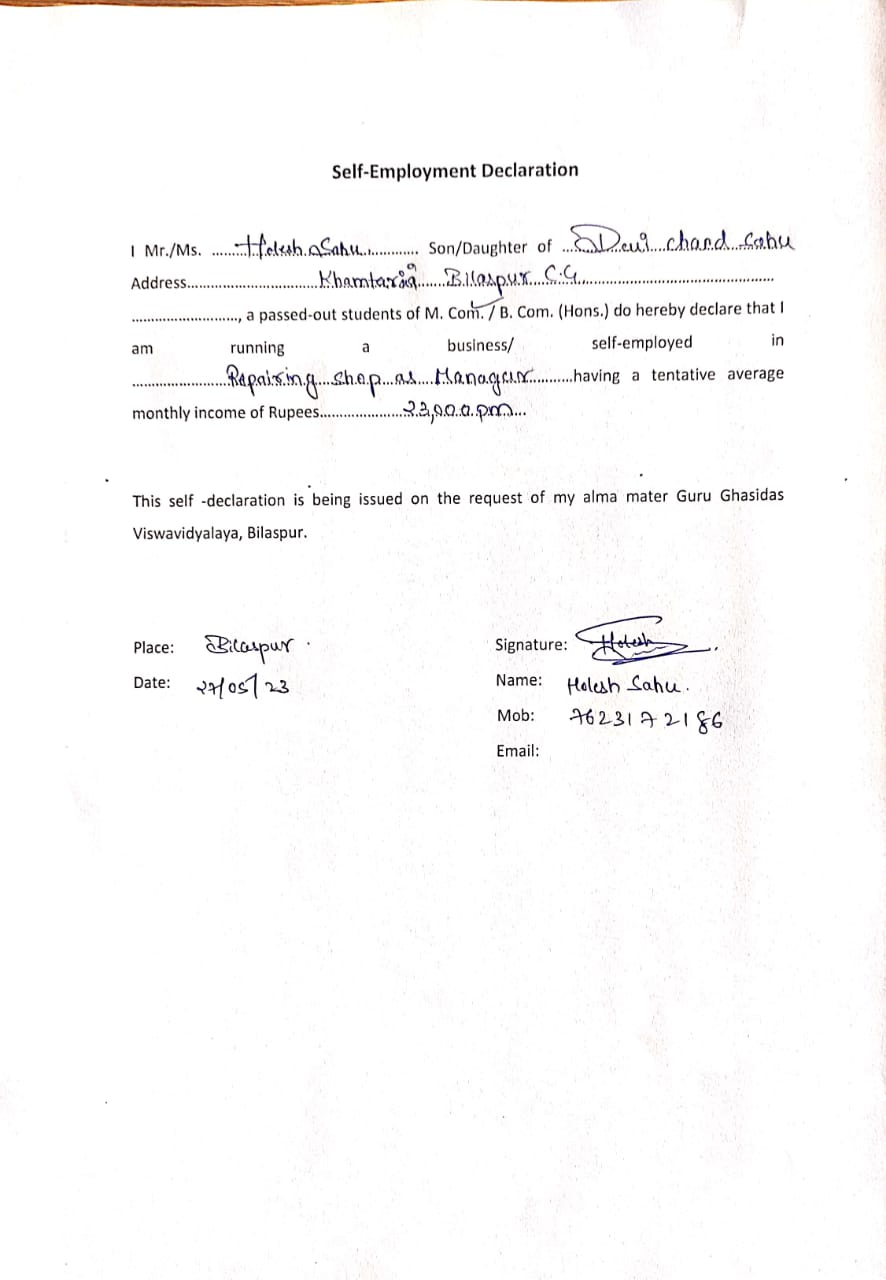 Self-Employment Declaration
I Mr./Ms. ........Holesh Sahu............. Son/Daughter of ...Devi chand Sahu
Address..................................Khamtaria.......Bilaspur C.G..................................................
..........................., a passed-out students of M. Com. / B. Com. (Hons.) do hereby declare that I
am running a business/ self-employed in
........................Repairing shop as Manager...........having a tentative average
monthly income of Rupees.....................22,000 pm...
This self -declaration is being issued on the request of my alma mater Guru Ghasidas
Viswavidyalaya, Bilaspur.
Place: Bilaspur
Date: 27/05/23
Signature: Holesh
Name: Holesh Sahu.
Mob: 7623172186
Email: